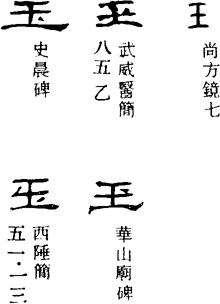 王
尚方鏡七
玉
武威醫簡
八五乙
玉
史晨碑
玉
華山廟碑
玉
西陲簡
五一·一三